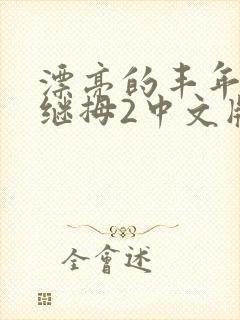 漂亮的丰年
继拇2中文版
全會述